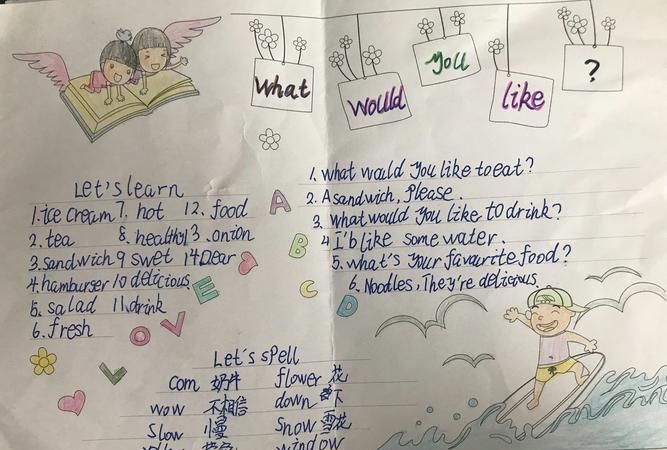 What would you like ?
Let's learn
1. ice cream 7. hot 12. food
2. tea 8. healthy 13. onion
3. sandwich 9 swet 14 Dear
4. hamburser 10 delicious
5. salad 11. drink
6. fresh
1. what would you like to eat?
2. A sandwich, please.
3. what would you like to drink?
4 I'b like some water.
5. what's your favourite food?
6. Noodles, They're delicious.
A
B
C
D
LOVE
Let's spell
com 奶牛 flower 花
wow 不相信 down 下
Slow 慢 Snow 雪花
window